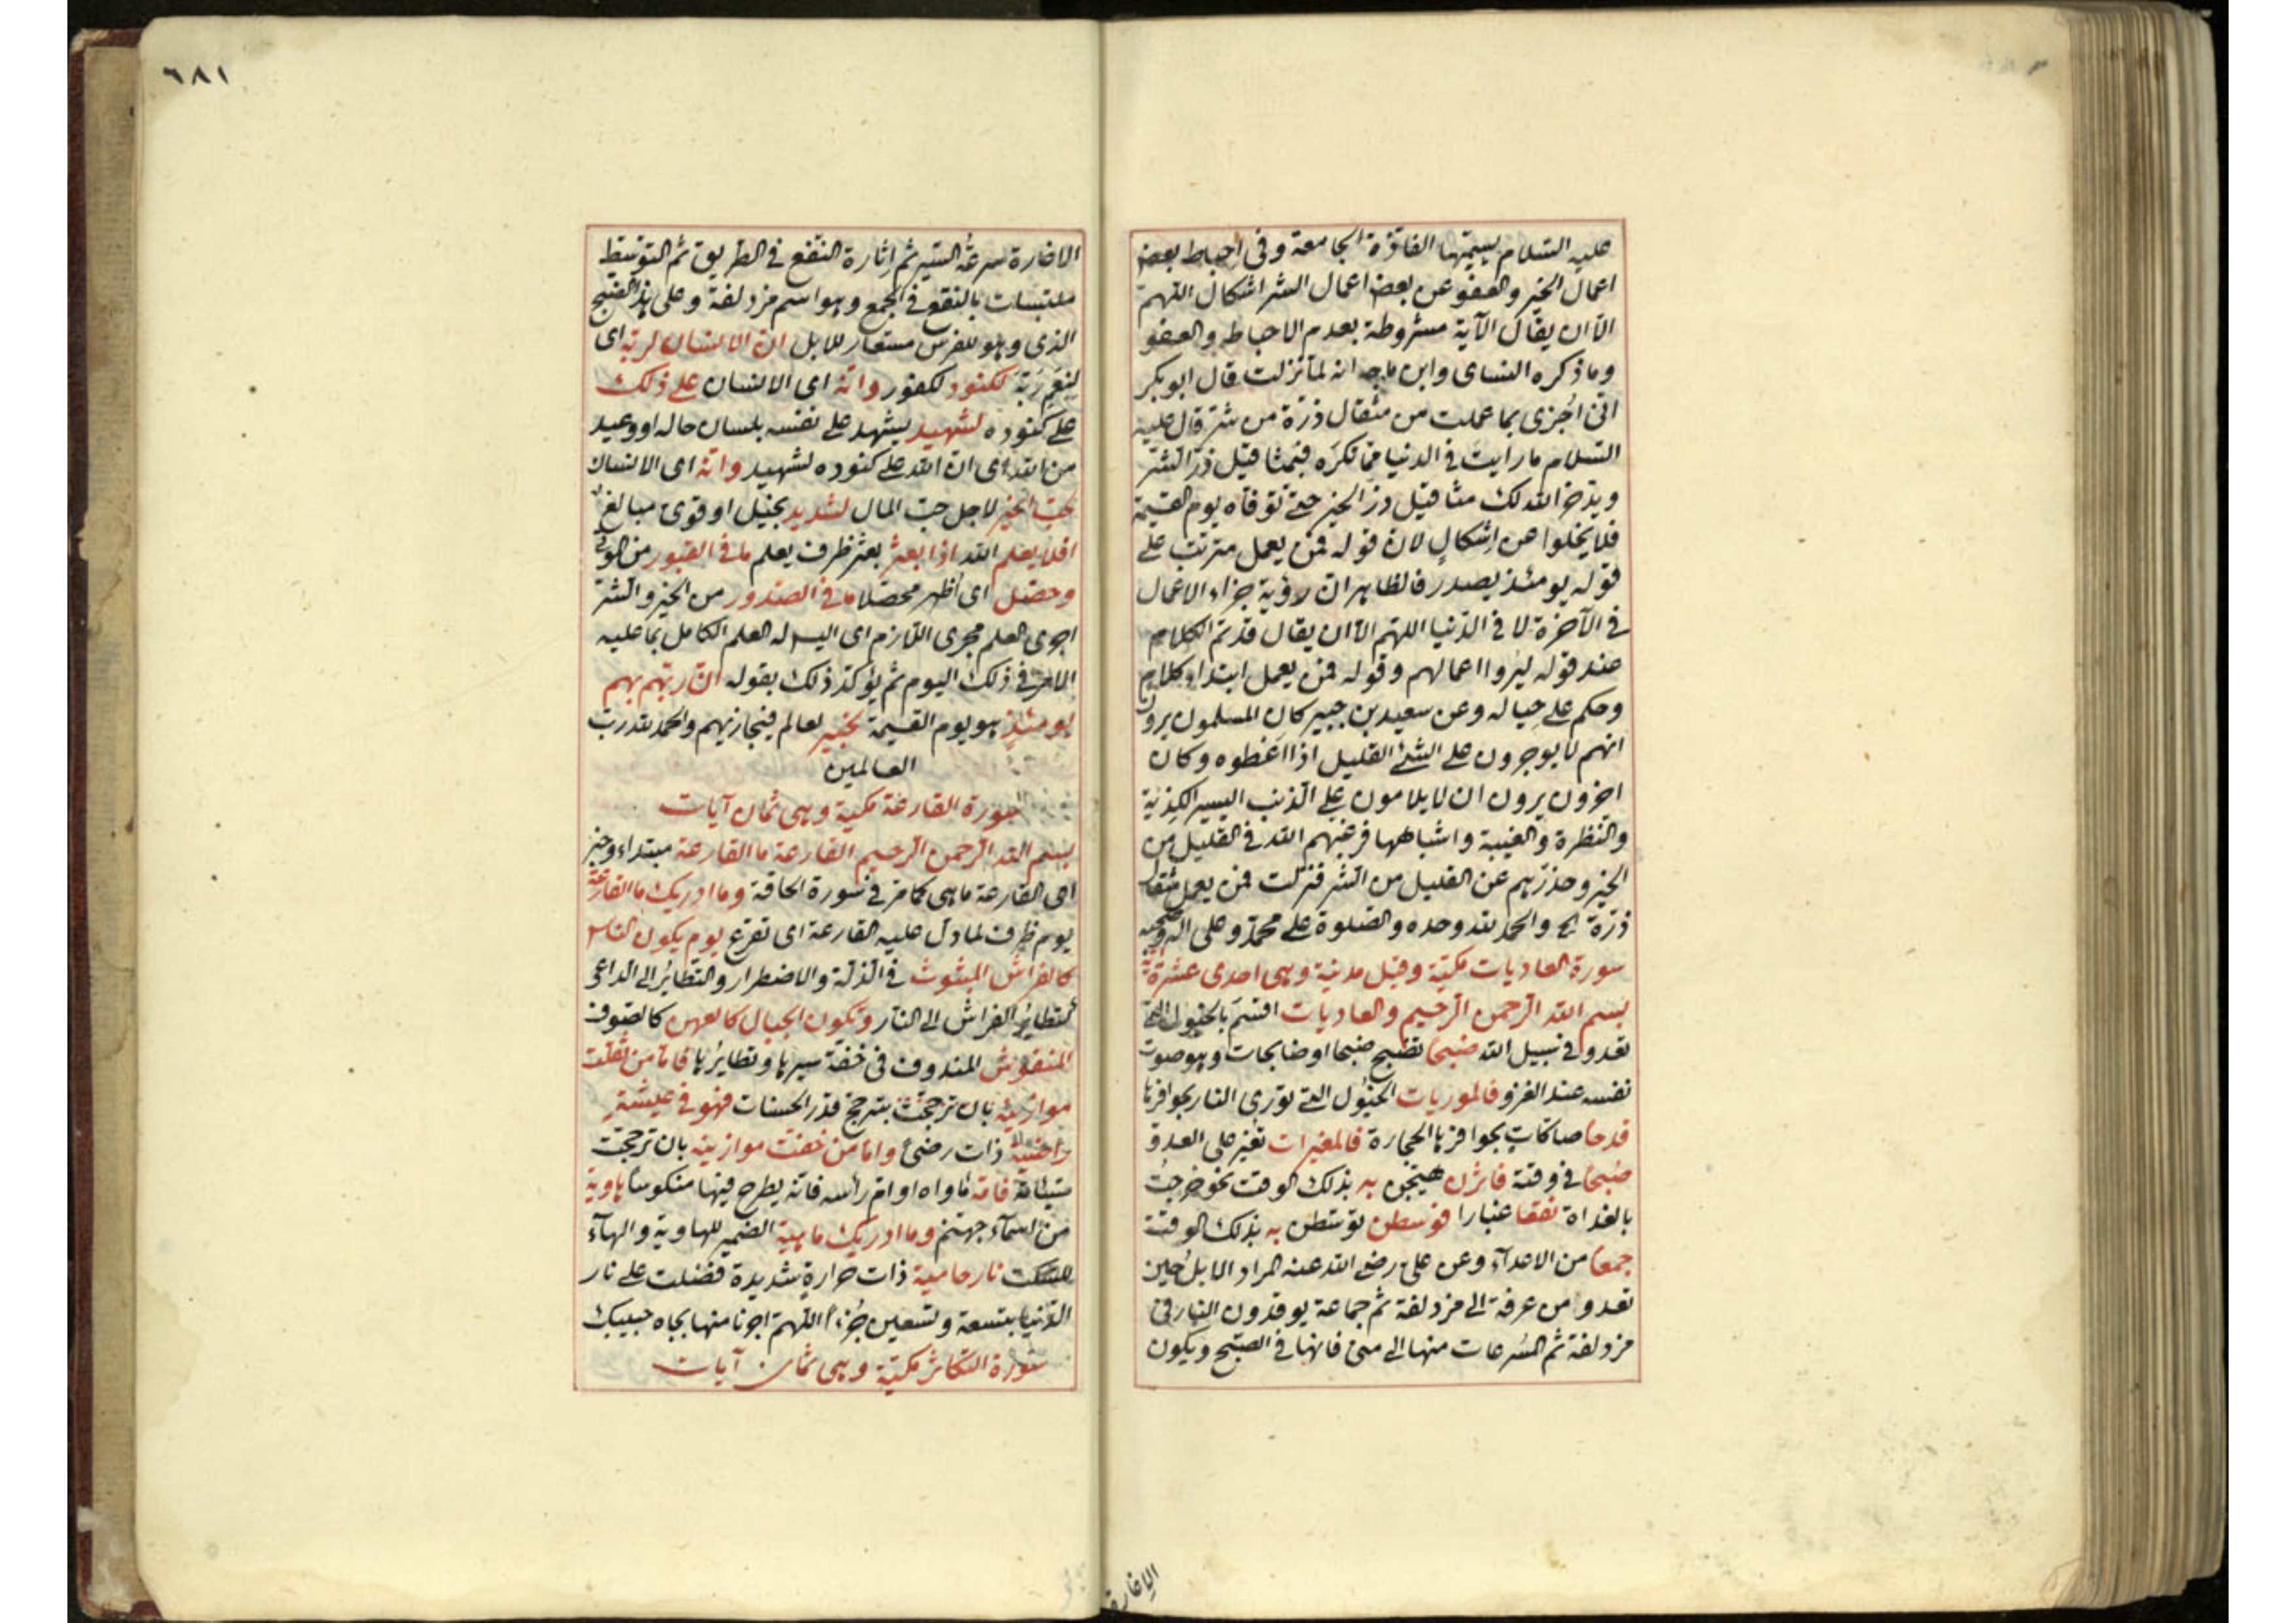 عليه السلام يسميها الفاذة الجامعة وفى احباط بعض
اعمال الخير والعفو عن بعض اعمال الشر اشكال اللهم
الّا ان يقال الآية مشروطة بعدم الاحباط والعفو
وما ذكره النساى وابن ماجه انه لما نزلت قال ابو بكر
انى اُجزى بما عملت من مثقال ذرة من شر قال عليه
السلام ما رايت فى الدنيا مما تكره فبمثاقيل ذر الشر
ويدخر الله لك مثاقيل ذر الخير حتى توفاه يوم القيمة
فلا يخلوا عن اشكال لان قوله فمن يعمل مترتب على
قوله يومئذ يصدر فالظاهر ان رؤية جزاء الاعمال
فى الآخرة لا فى الدنيا اللهم الّا ان يقال قد تم الكلام
عند قوله ليروا اعمالهم وقوله فمن يعمل ابتداء كلام
وحكم على حياله وعن سعيد بن جبير كان المسلمون يرون
انهم لا يوجرون على الشئ القليل اذا اعطوه وكان
اخرون يرون ان لا يلامون على الذنب اليسير الكذبة
والنظرة والغيبة واشباهها فرغبهم الله فى القليل من
الخير وحذرهم عن القليل من الشر فنزلت فمن يعمل مثقال
ذرة الخ والحمد لله وحده والصلوة على محمد وعلى اله وصحبه
سورة العاديات مكية وقيل مدنية وهى احدى عشرة آية
بسم الله الرحمن الرحيم والعاديات اقسم بالخيول التى
تعدو فى سبيل الله ضبحا تضبح ضبحا او ضابحات وهو صوت
نفسه عند الغزو فالموريات الخيول التى تورى النار بحوافرها
قدحا صاكات بحوافرها الحجارة فالمغيرات تغير على العدو
صبحا فى وقته فاثرن هيجن به بذلك الوقت نحو خرجت
بالغداة نقعا غبارا فوسطن توسطن به بذلك الوقت
جمعا من الاعدآء وعن على رضى الله عنه المراد الابل حين
تعدو من عرفة الى مزدلفة ثم جماعة يوقدون النار فى
مزدلفة ثم المسرعات منها الى منى فانها فى الصبح ويكون
الاغارة
٦٨١
الاغارة سرعة السير ثم اثارة النقع فى الطريق ثم التوسط
ملتبسات بالنقع فى الجمع وهو اسم مزدلفة وعلى هذا الضبح
الذى وهو للفرس مستعار للابل ان الانسان لربه اى
لنعم ربه لكنود لكفور وانه اى الانسان على ذلك
على كنوده لشهيد يشهد على نفسه بلسان حاله او وعيد
من الله اى ان الله على كنوده لشهيد وانه اى الانسان
لحب الخير لاجل حب المال لشديد بخيل او قوى مبالغ
افلا يعلم الله اذا بعثر بعثر ظرف يعلم ما فى القبور من الموتى
وحصل اى اُظهر محصلا ما فى الصدور من الخير والشر
اجرى العلم مجرى اللازم اى اليس له العلم الكامل بما عليه
الامر فى ذلك اليوم ثم يؤكد ذلك بقوله ان ربهم بهم
يومئذ هو يوم القيمة لخبير لعالم فيجازيهم والحمد لله رب
العالمين
سورة القارعة مكية وهى ثمان آيات
بسم الله الرحمن الرحيم القارعة ما القارعة مبتداء وخبر
اى القارعة ما هى كما مر فى سورة الحاقة وما ادريك ما القارعة
يوم ظرف لما دل عليه القارعة اى تقرع يوم يكون الناس
كالفراش المبثوث فى الذلة والاضطرار والتطاير الى الداعى
كتطاير الفراش الى النار وتكون الجبال كالعهن كالصوف
المنفوش المندوف فى خفة سيرها وتطايرها فاما من ثقلت
موازينه بان ترجحت بترجح قدر الحسنات فهو فى عيشة
راضية ذات رضى واما من خفت موازينه بان ترجحت
سيئاته فامه ماواه او ام راسه فانه يطرح فيها منكوسا هاوية
من اسماء جهنم وما ادريك ما هيه الضمير للهاوية والهآء
للسكت نار حامية ذات حرارة شديدة فضلت على نار
الدنيا بتسعة وتسعين جزءا اللهم اجرنا منها بجاه حبيبك
سورة التكاثر مكية وهى ثمان آيات